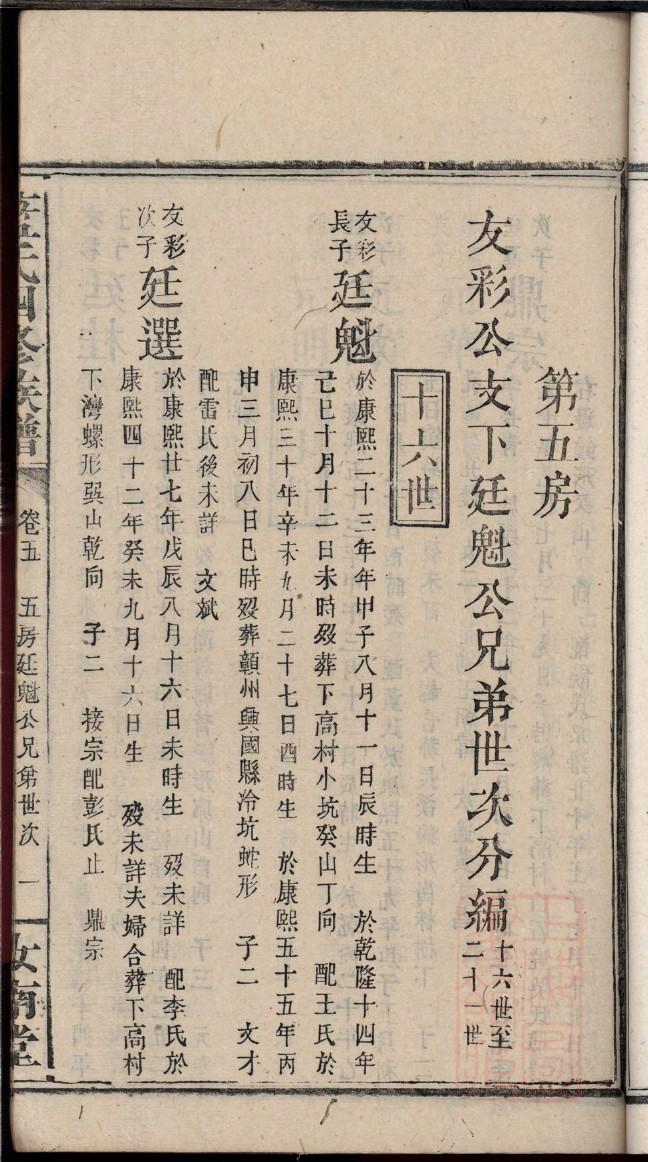 第五房
友彩公支下廷魁公兄弟世次分編 十六世至二十一世
十六世
友彩長子 廷魁 於康熙二十三年年甲子八月十一日辰時生 於乾隆十四年
己巳十月十二日未時殁葬下高村小坑癸山丁向 配王氏於
康熙三十年辛未九月二十七日酉時生 於康熙五十五年丙
申三月初八日巳時殁葬贛州興國縣冷坑蛇形 子二 文才
配雷氏後未詳 文斌
友彩次子 廷選 於康熙廿七年戊辰八月十六日未時生 殁未詳 配李氏於
康熙四十二年癸未九月十六日生 殁未詳夫婦合葬下高村
下灣螺形巽山乾向 子二 接宗配彭氏止 鼎宗
氏四修族譜
卷五 五房廷魁公兄弟世次 一
汝南堂